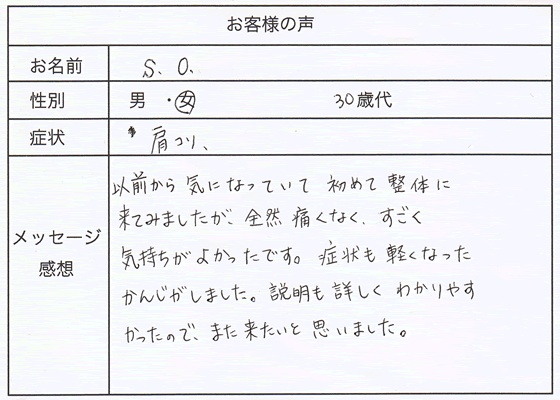 お客様の声
お名前 S. O.
性別 男 ・ 女 30歳代
症状 肩コリ、
メッセージ
感想
以前から 気になっていて 初めて 整体に
来てみましたが、全然 痛くなく、すごく
気持ちがよかったです。症状も 軽くなった
かんじがしました。説明も 詳しく わかりやす
かったので、また 来たいと 思いました。